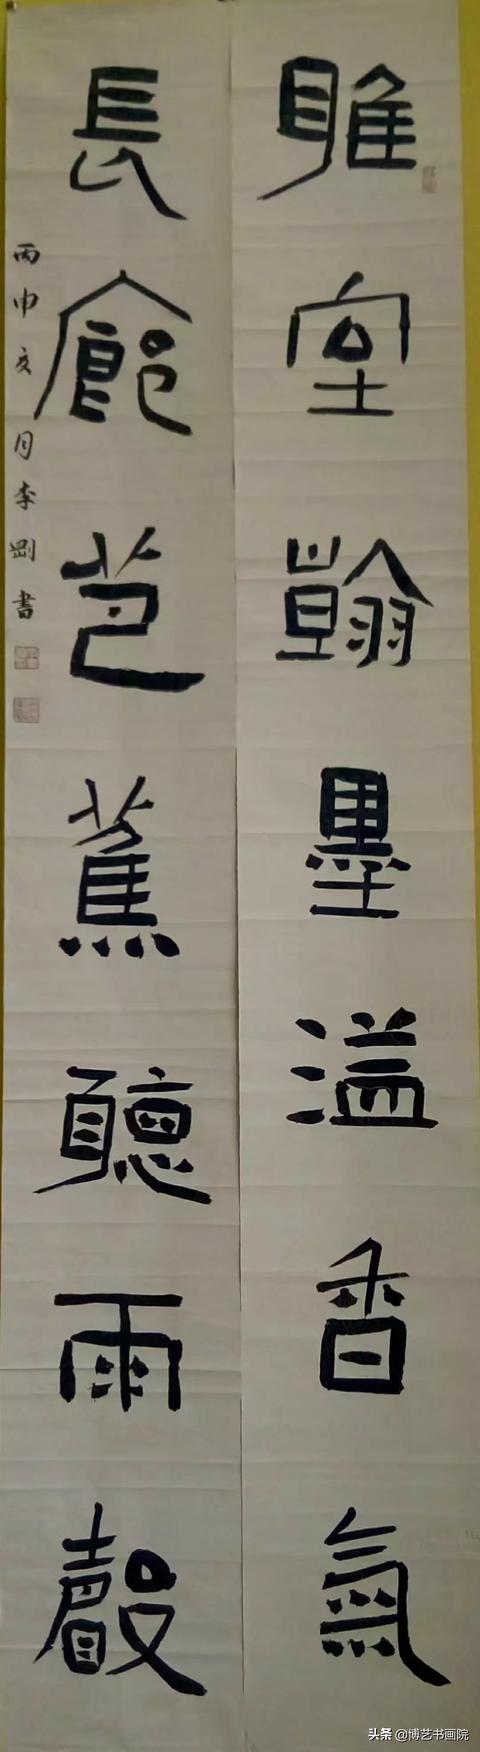 雅室翰墨溢香氣
長廊芭蕉聽雨聲
丙申亥月李剛書
头条 @博艺书画院